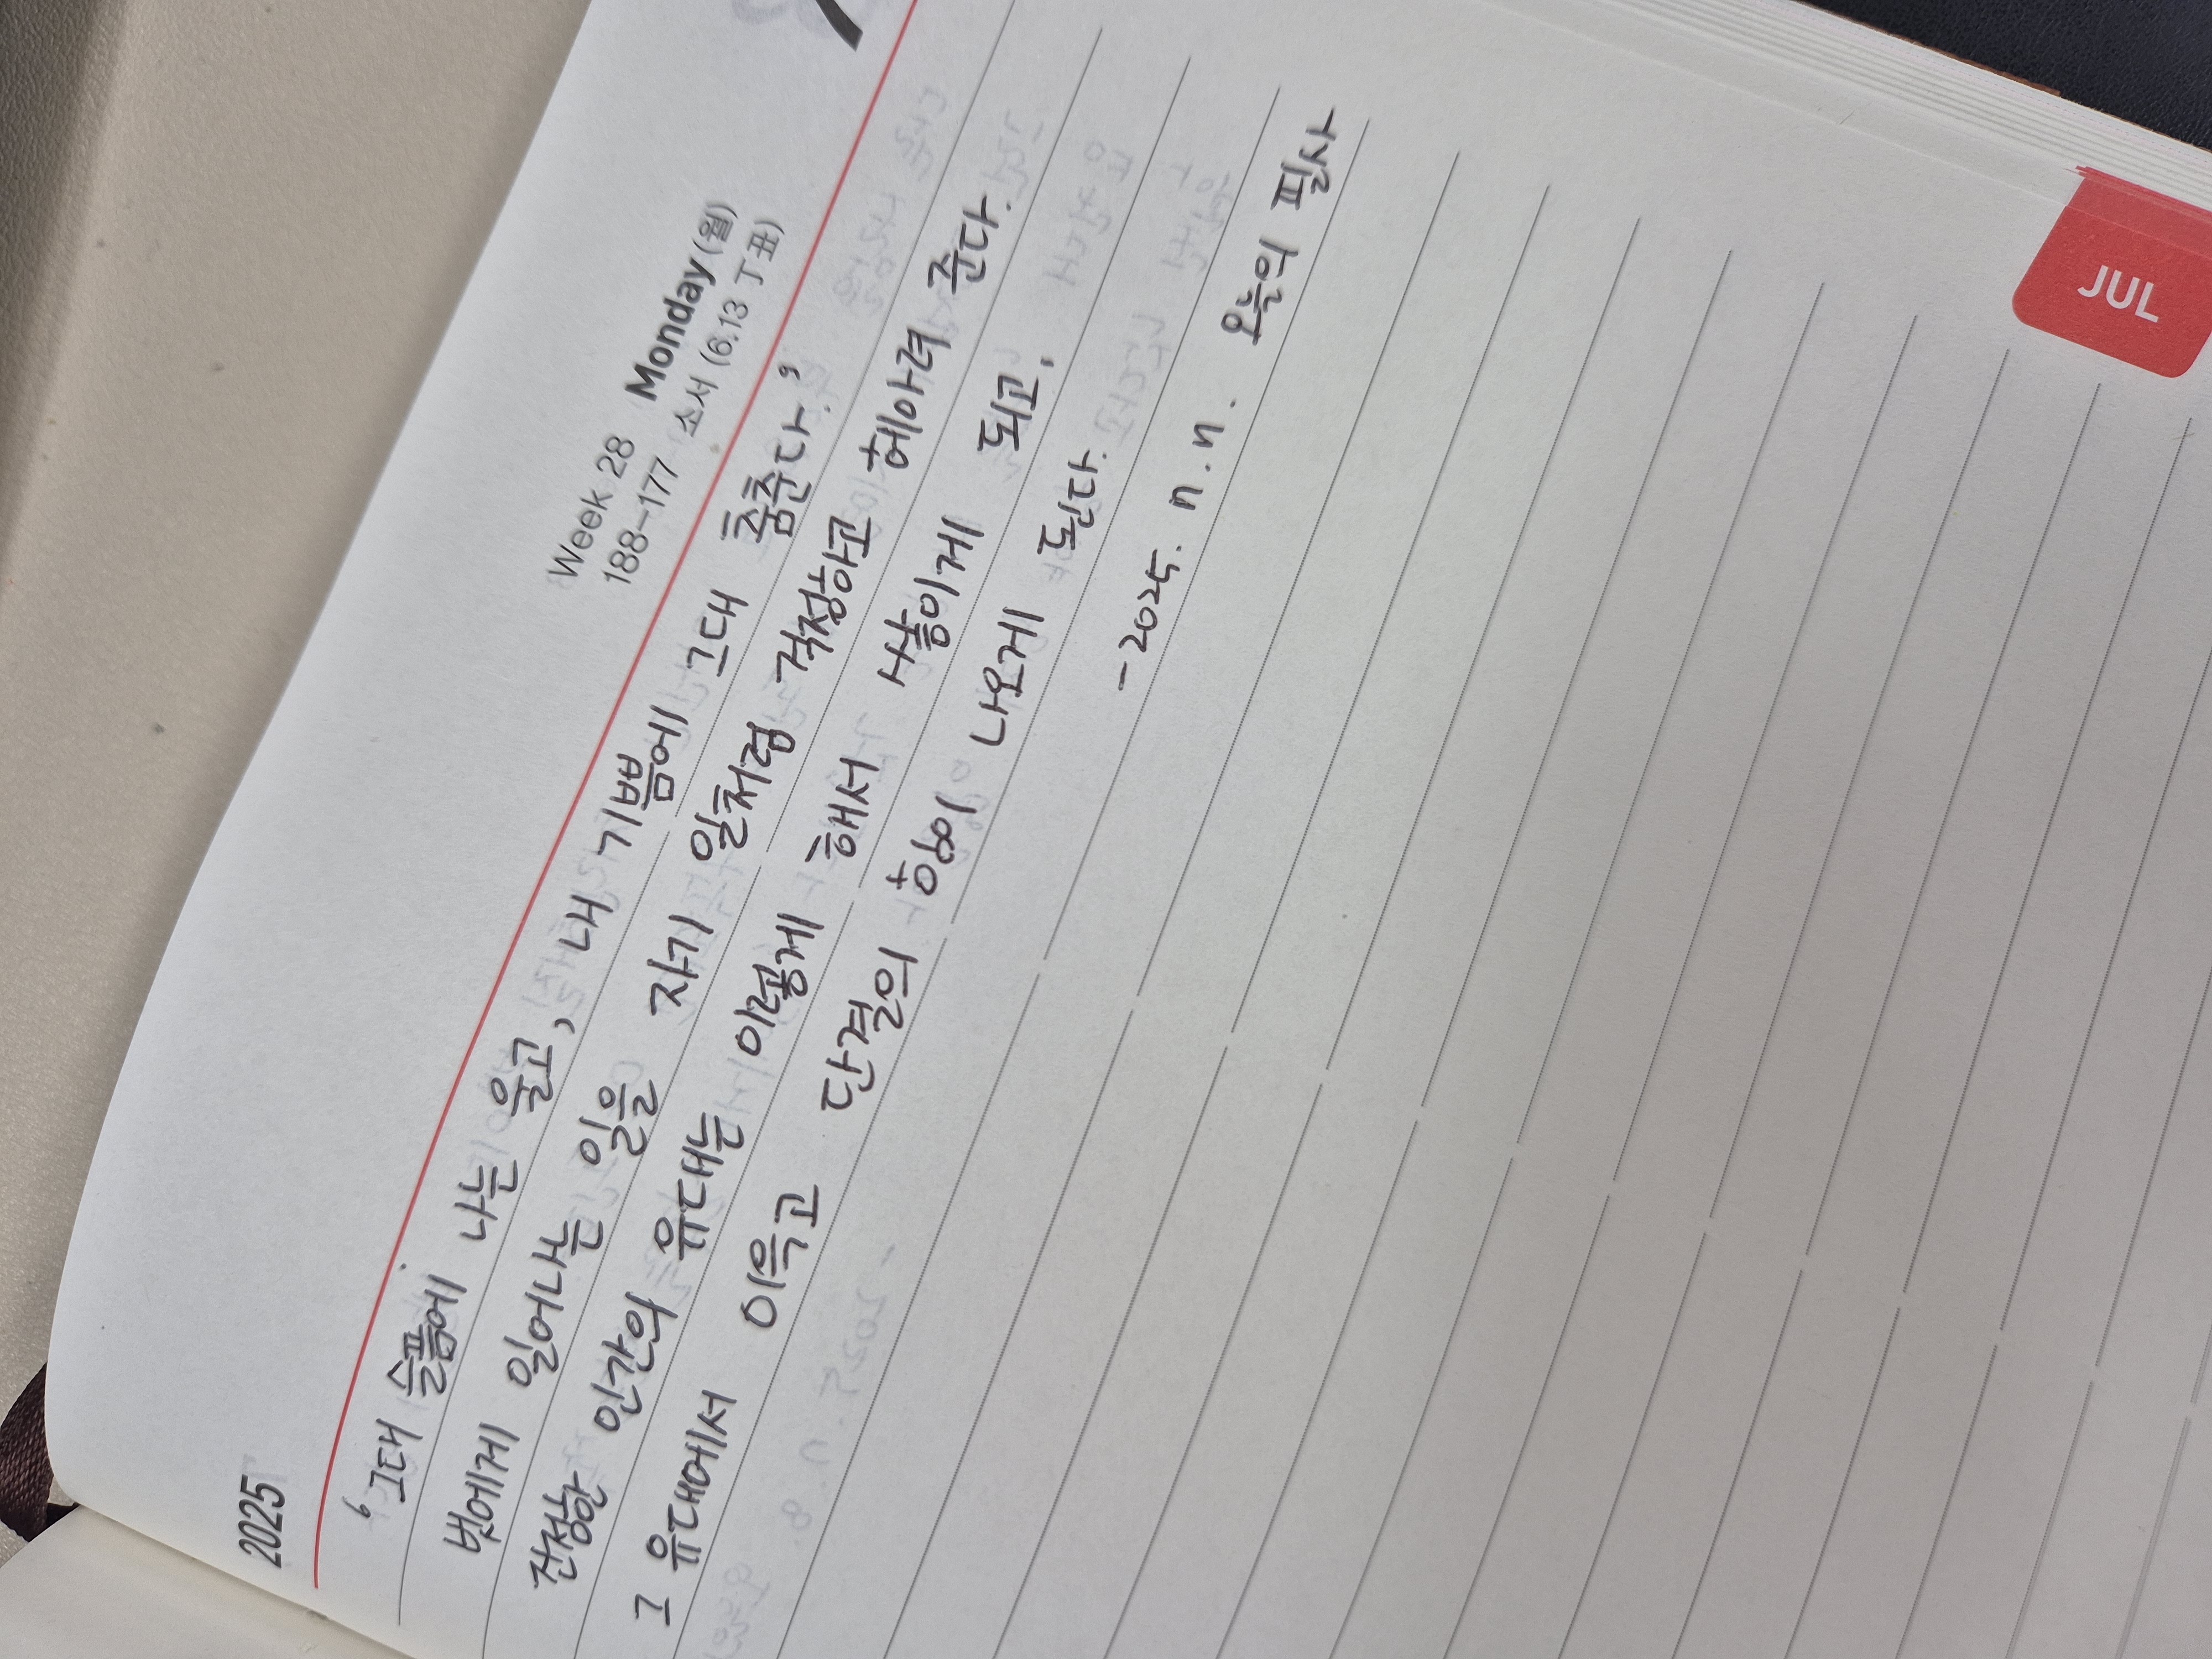 2025
Week 28 Monday (월)
188-177 소서 (6.13 丁丑)
7
‘그대 슬픔에 나는 울고, 내 기쁨에 그대 춤춘다.’
벗에게 일어나는 일을 자기 일처럼 걱정하고 헤아려 준다.
진정한 인간의 유대는 이렇게 해서 쌓이게 되고,
그 유대에서 이윽고 단결의 힘이 나오게 된다.
- 2025. 7. 7. 오늘의 필사
JUL